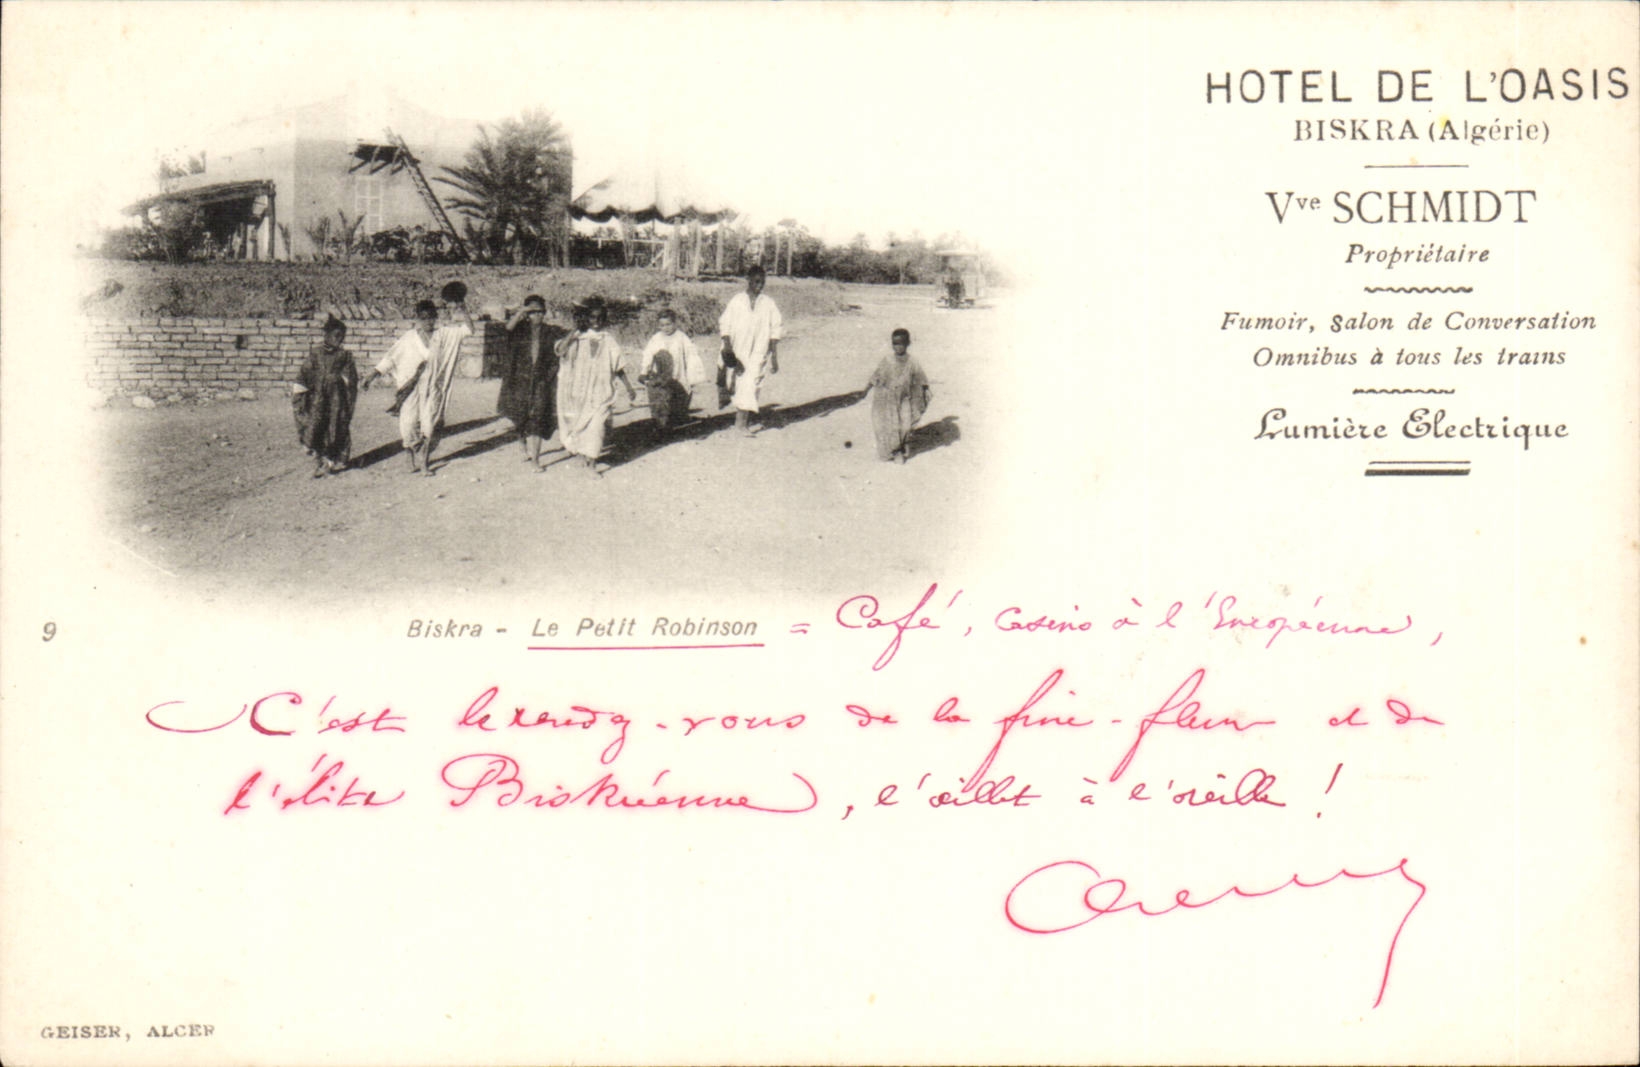 HOTEL DE L'OASIS
BISKRA (Algérie)
Vve SCHMIDT
Propriétaire
Fumoir, Salon de Conversation
Omnibus à tous les trains
Lumière Electrique
9
Biskra - Le Petit Robinson = Café, Casino à l'Européenne,
C'est le rendez-vous de la fine-fleur et de
l'élite Biskréenne, l'œillet à l'oreille !
GEISER, ALGER